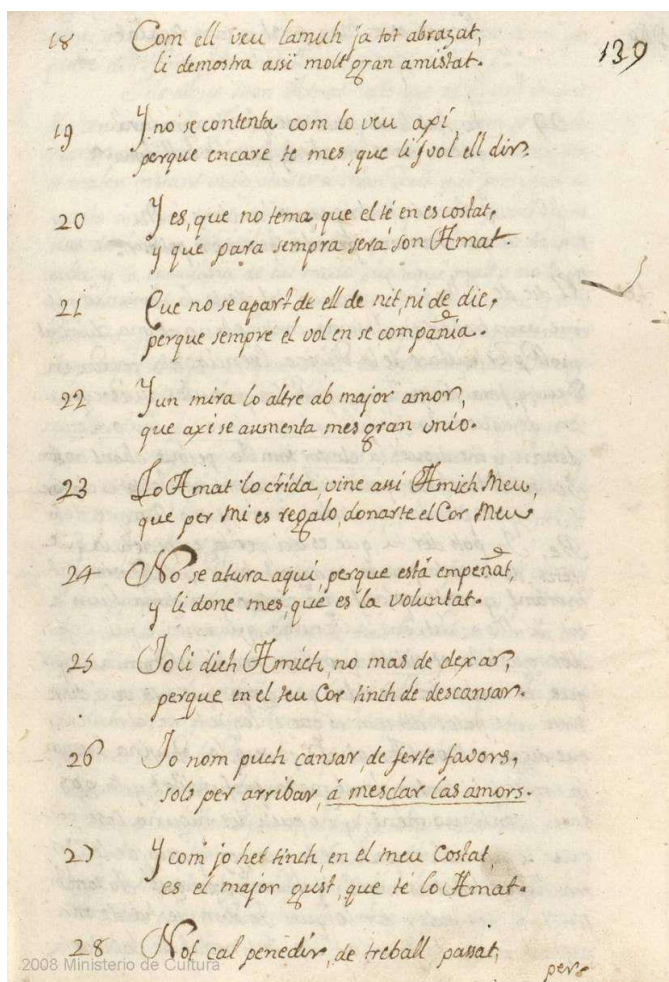 139
18 Com ell veu lamich ja tot abrazat,
li demostra assi molt gran amistat.
19 Y no se contenta com lo veu axí,
perque encare te mes, que li vol ell dir.
20 Y es, que no tema, que el té en es costat,
y que para sempra será son Amat.
21 Que no se apart de ell de nit, ni de die,
perque sempre el vol en se compañia.
22 Y un mira lo altre ab major amor,
que axi se aumenta mes gran unio.
23 Lo Amat lo crida, vine assi Amich Meu,
que per Mi es regalo, donarte el Cor Meu
24 No se atura aquí, perque está empeñat,
y li done mes, que es la voluntat.
25 Jo li dich Amich, no mas de dexar,
perque en el teu Cor tinch de descansar.
26 Jo nom puch cansar, de ferte favors,
sols per arribar, á mesclar las amors.
27 Y com jo het tinch, en el meu Costat,
es el major gust, que té lo Amat.
28 Not cal penedir, de treball passat,
per
2008 Ministerio de Cultura